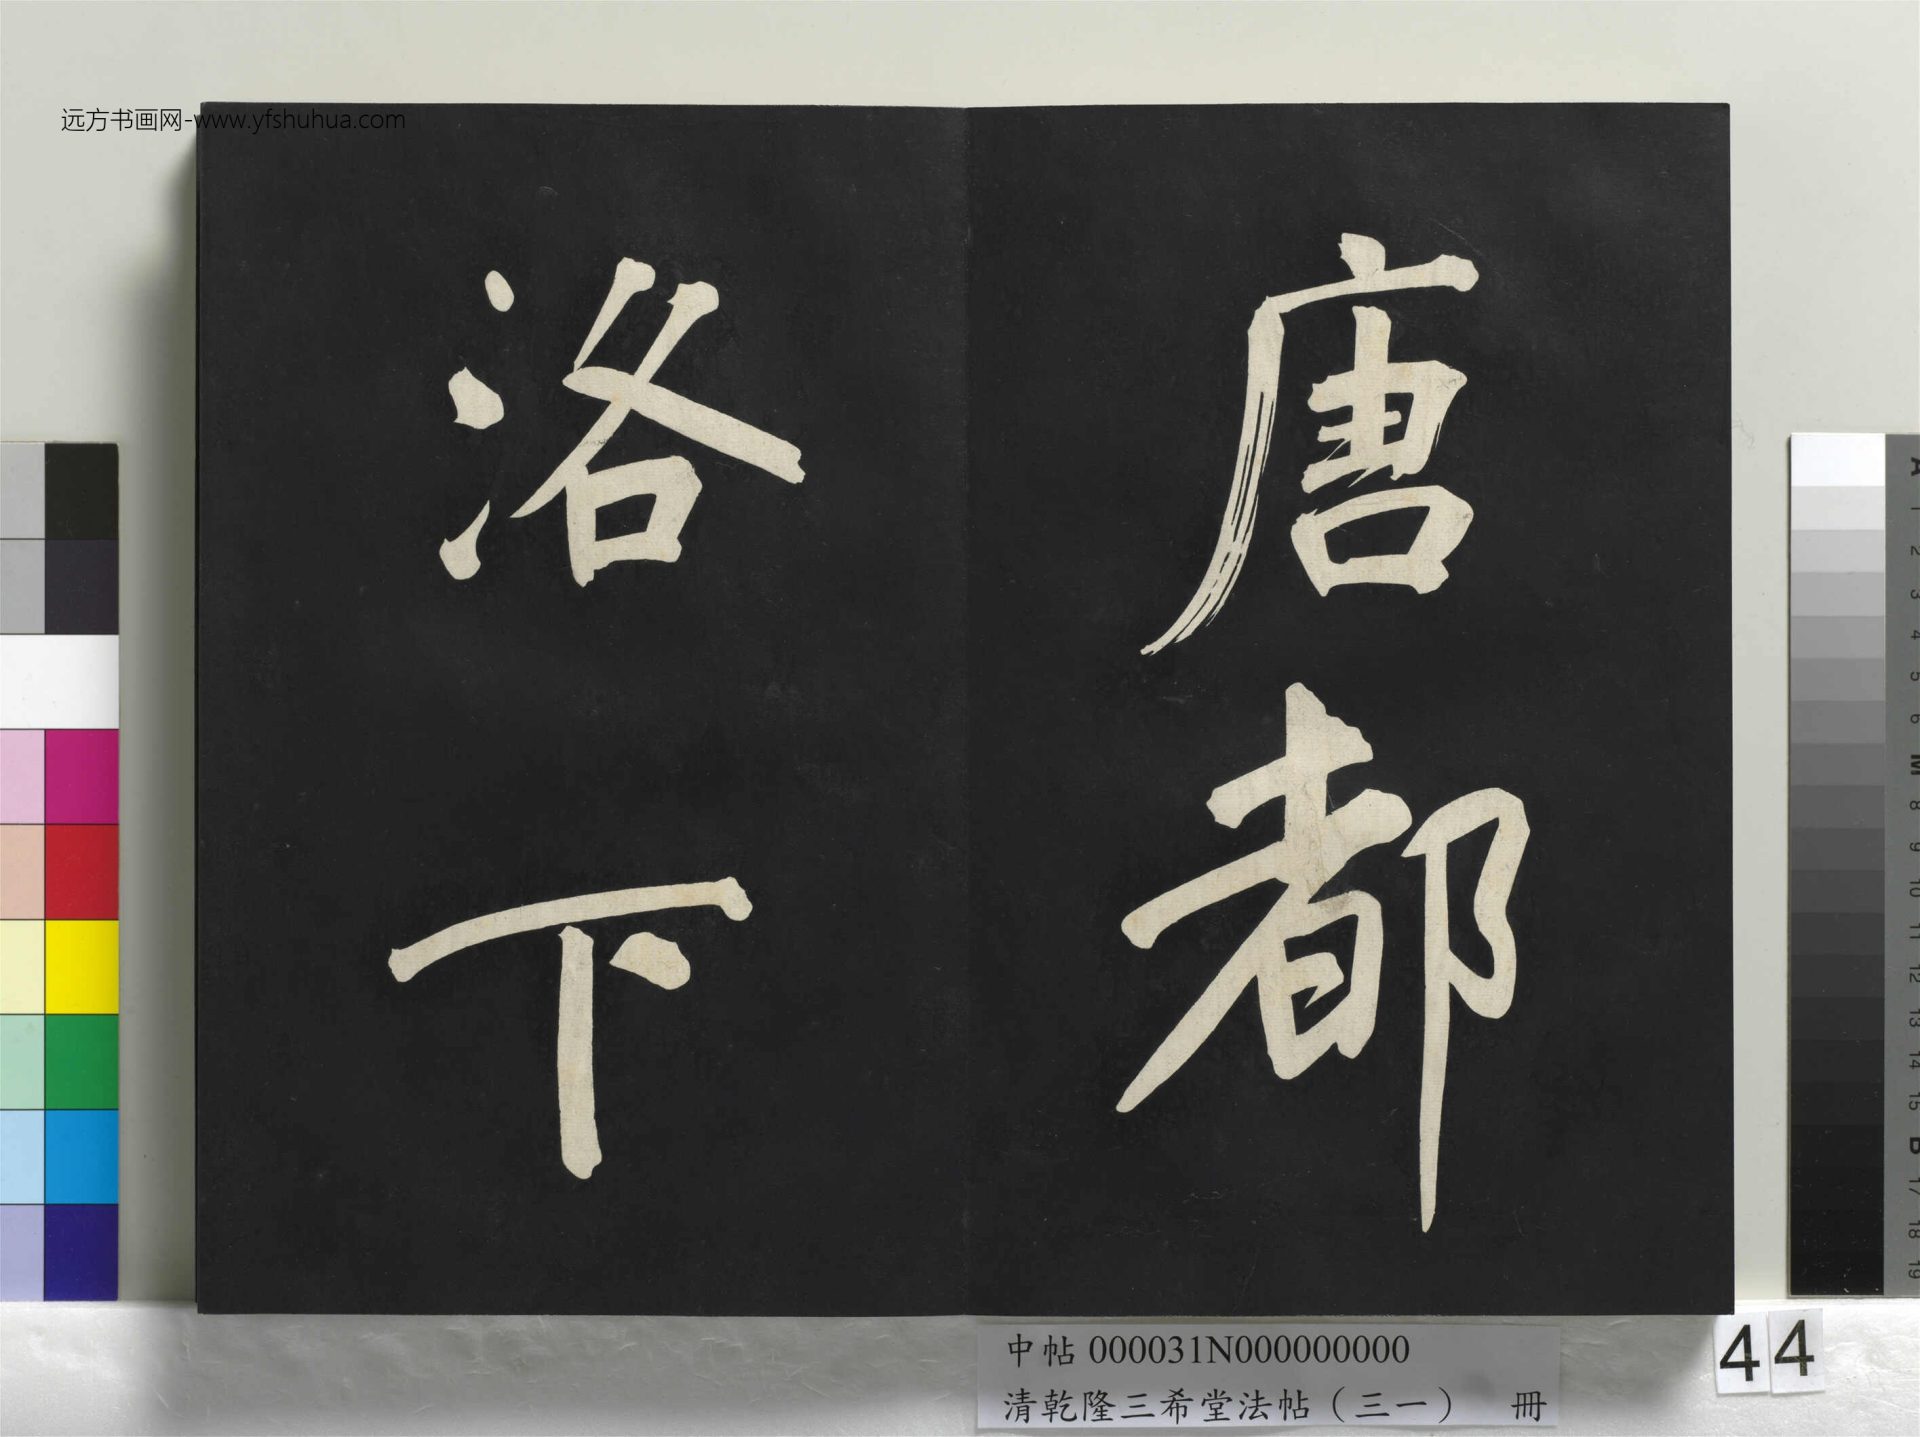 远方书画网-www.yfshuhua.com
唐都
洛下
中帖 000031N000000000
清乾隆三希堂法帖（三一） 冊
44
A 1 2 3 4 5 6 M 8 9 10 11 12 13 14 15 B 17 18 19